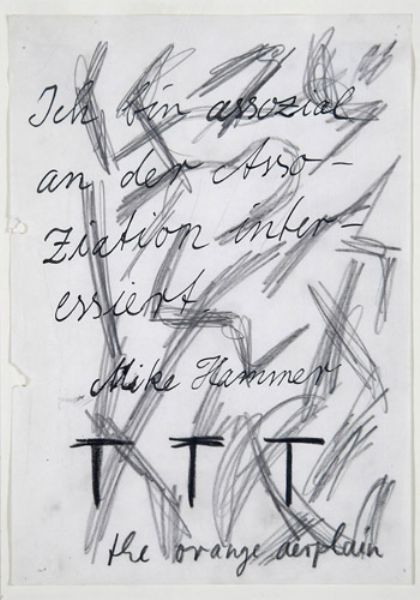 Ich bin assozial
an der Asso-
ziation inter-
essiert.
Mike Hammer
T T T
the orange aerplain